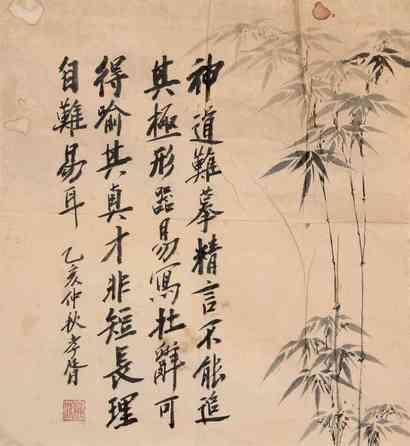 神道難摹精言不能追
其極形器易寫壯辭可
得喻其真才非短長理
自難易耳
乙亥仲秋孝胥